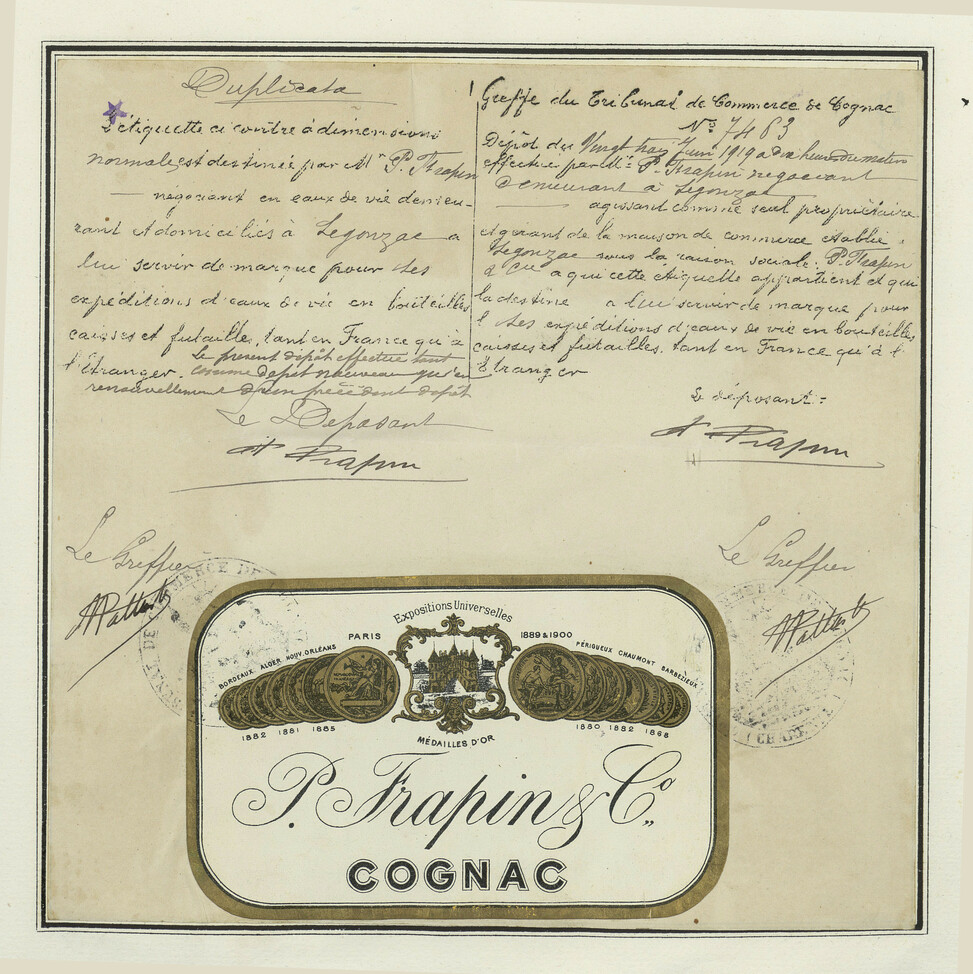 Duplicata
L'étiquette ci contre à dimensions
normales est destinée par Mr P. Frapin
négociant en eaux de vie demeu-
rant et domiciliés à Segonzac a
lui servir de marque pour ses
expéditions d'eaux de vie en bouteilles
caisses et futailles, tant en France qu'à
l'étranger. Le présent dépôt effectué tant
comme dépôt nouveau qu'en
renouvellement d'un précédent dépôt
Le Déposant
P. Frapin
Le Greffier
Greffe du Tribunal de Commerce de Cognac
No 7483
Dépôt du Vingt trois Juin 1919 a dix heures du matin
effectué par M. P. Frapin négociant
Demeurant à Segonzac
agissant comme seul propriétaire
et gérant de la maison de commerce établie
Segonzac sous la raison sociale. P. Frapin
& Cie a qui cette étiquette appartient et qui
la destine a lui servir de marque pour
ses expéditions d'eaux de vie en bouteilles
caisses et futailles, tant en France qu'à l'
étranger
Le déposant =
P. Frapin
Le Greffier
Expositions Universelles
PARIS 1889 & 1900
BORDEAUX ALGER NOUV. ORLÉANS
PÉRIGUEUX CHAUMONT BARBEZIEUX
1882 1881 1885
1880 1882 1868
MÉDAILLES D'OR
P. Frapin & Co
COGNAC